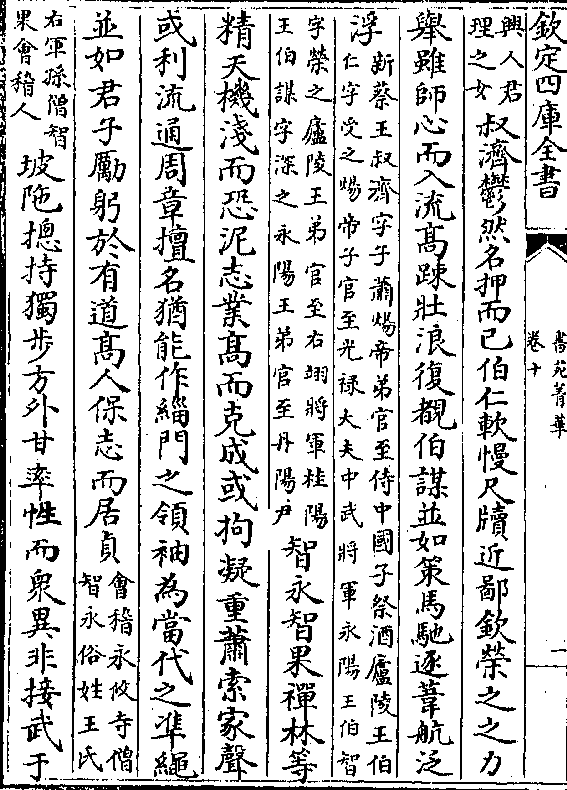 欽定四庫全書
書苑菁華
卷十
一
興人君
理之女
叔濟鬱然名押而已伯仁軟慢尺牘近鄙欽榮之之力
舉雖師心而入流高踈壯浪復覩伯謀並如策馬馳逐葦航泛
浮
新蔡王叔濟字子蕭煬帝弟官至侍中國子祭酒廬陵王伯
仁字受之煬帝子官至光禄大夫中武將軍永陽王伯智
字榮之廬陵王弟官至右翊將軍桂陽
王伯謀字深之永陽王弟官至丹陽尹
智永智果禪林等
精天機淺而恐泥志業高而克成或拘凝重蕭索家聲
或利流通周章擅名猶能作緇門之領袖為當代之準繩
並如君子勵躬於有道高人保志而居貞
會稽永攸寺僧
智永俗姓王氏
右軍孫僧智
果會稽人
坡陁揔持獨步方外甘率性而衆異非接武于